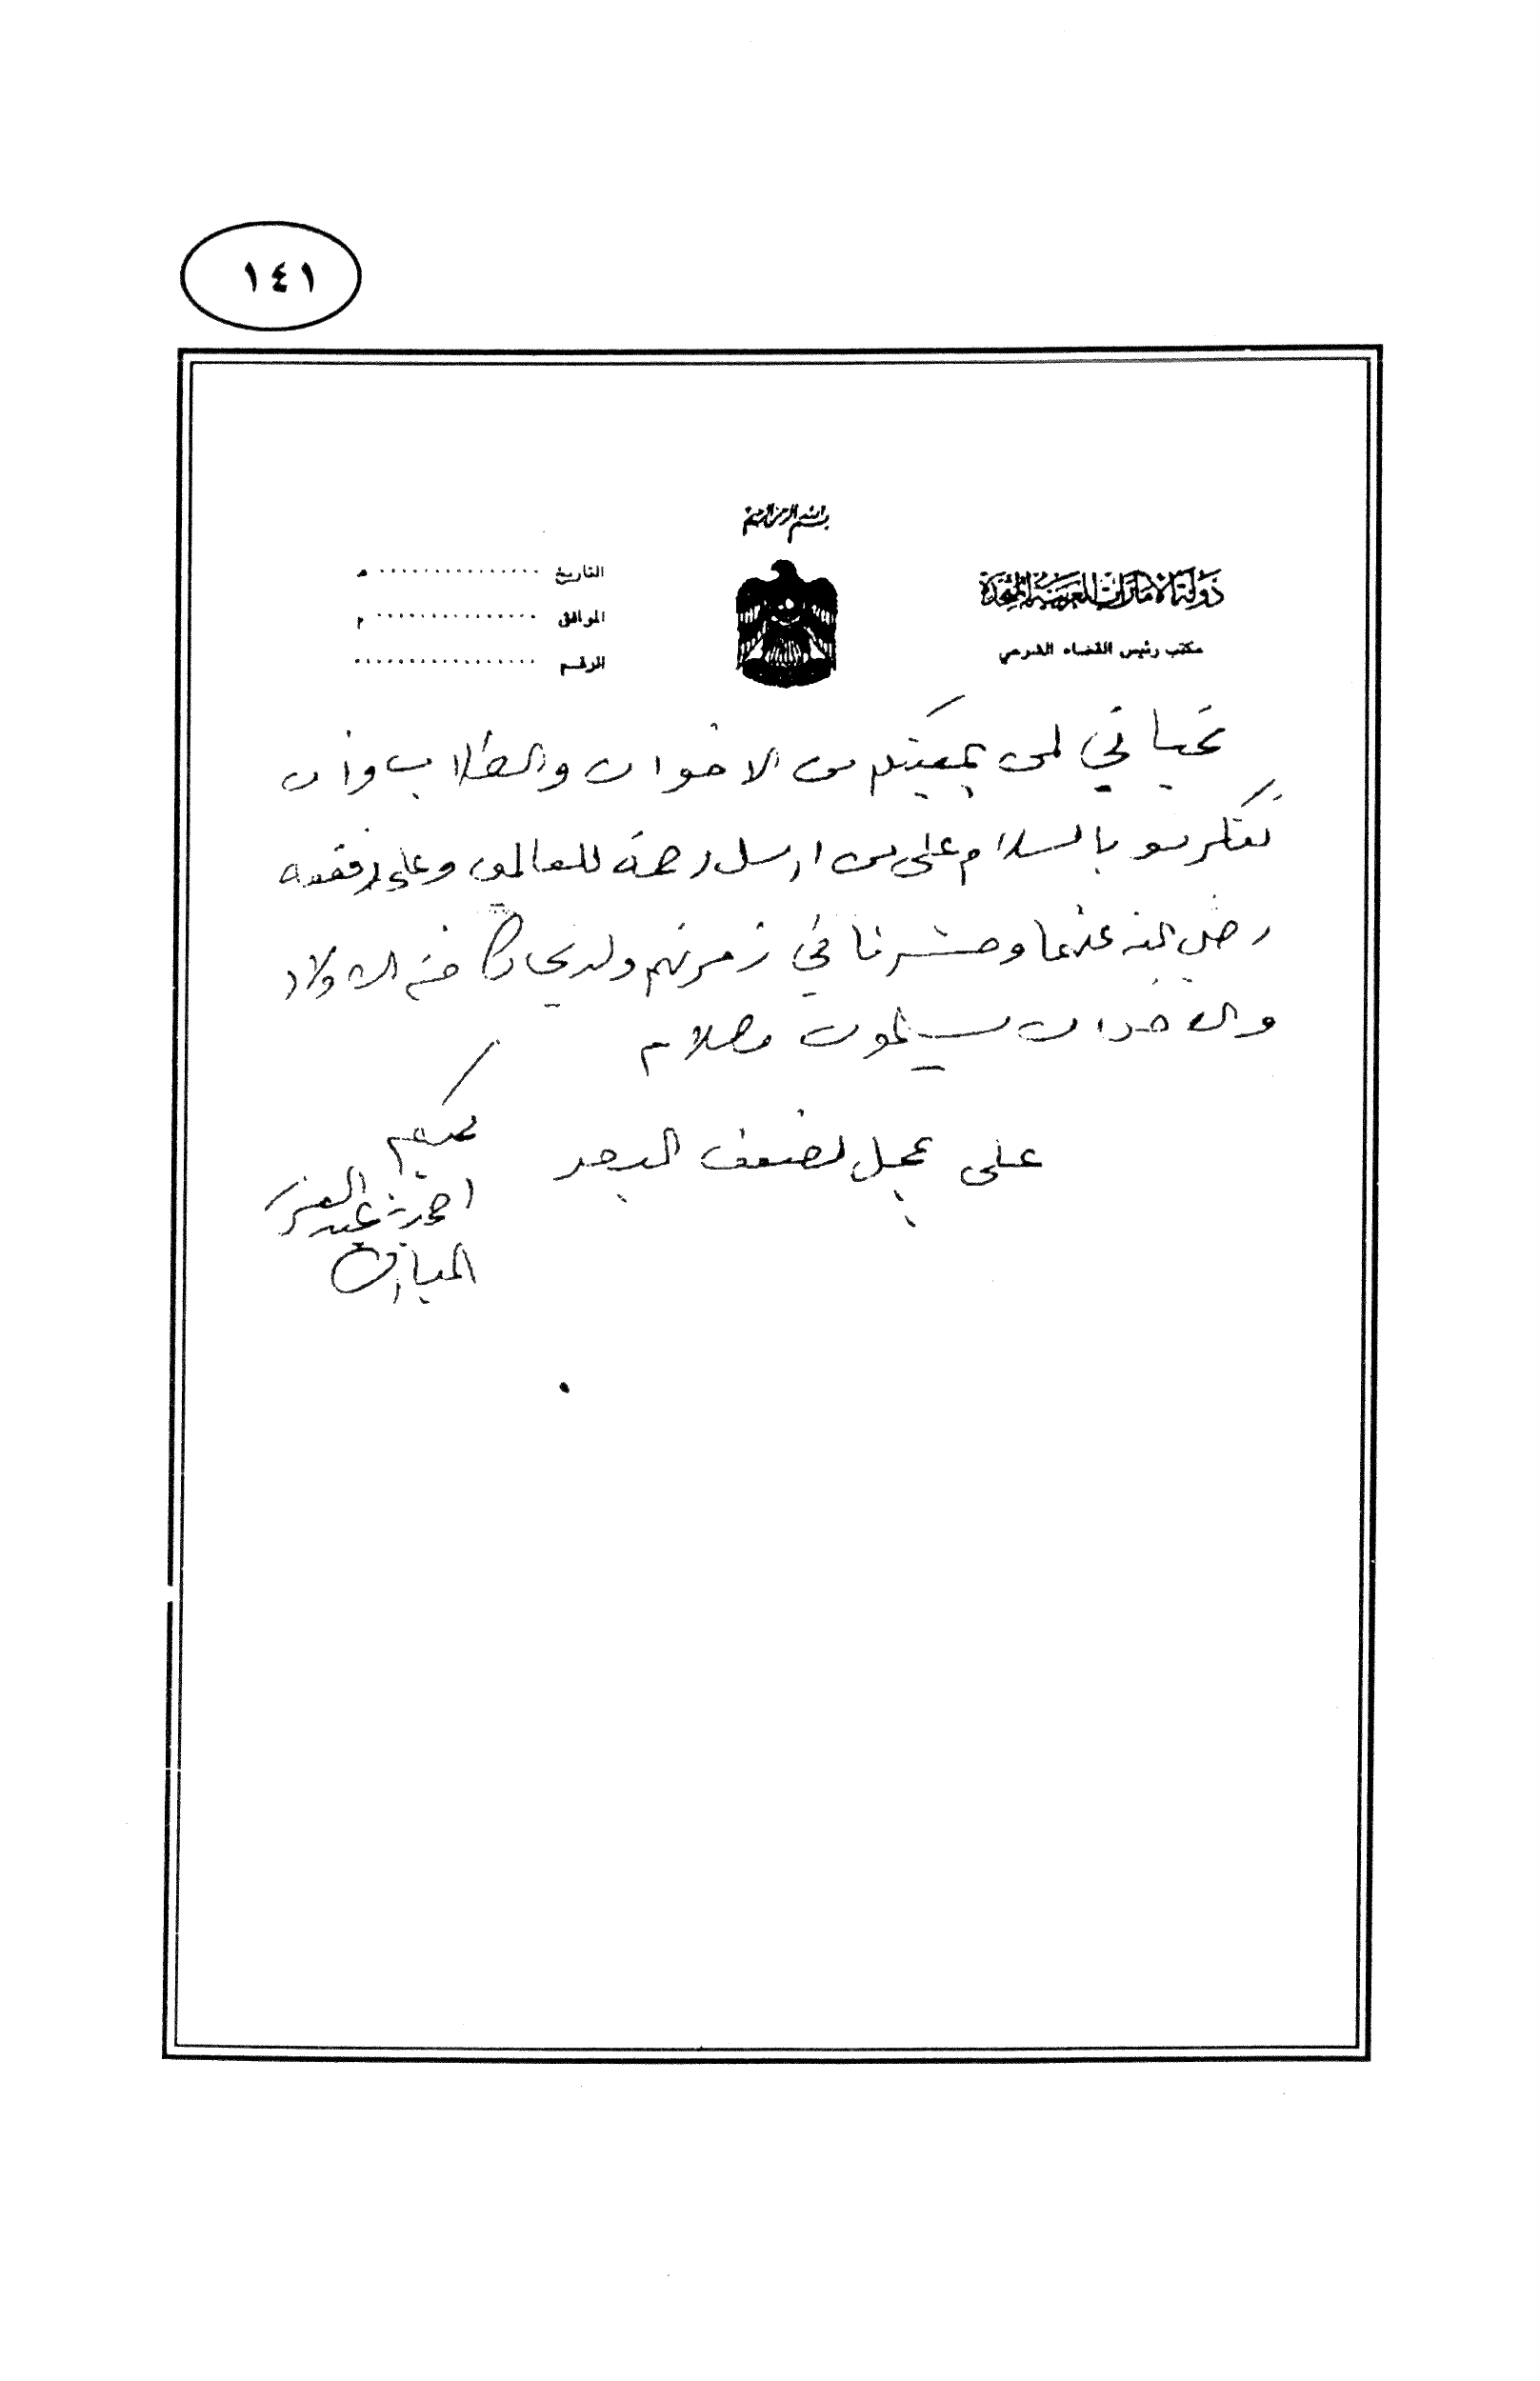 ١٤١
بسم الله الرحمن الرحيم
دولة الامارات العربية المتحدة
مكتب رئيس القضاء الشرعي
التاريخ ................ هـ
الموافق ................ م
الرقم .................
تحياتي لمن بمعيتكم من الاخوان والطلاب وأن
تتكرمو بالسلام على من ارسل رحمة للعالمين وعلى رفقته
رضي الله عنهما وحشرنا في زمرتهم ولدي كافة الاولاد
والاخوان يسلمون
على عجل لضعف البصر
محبكم
احمد بن عبد العزيز
المبارك